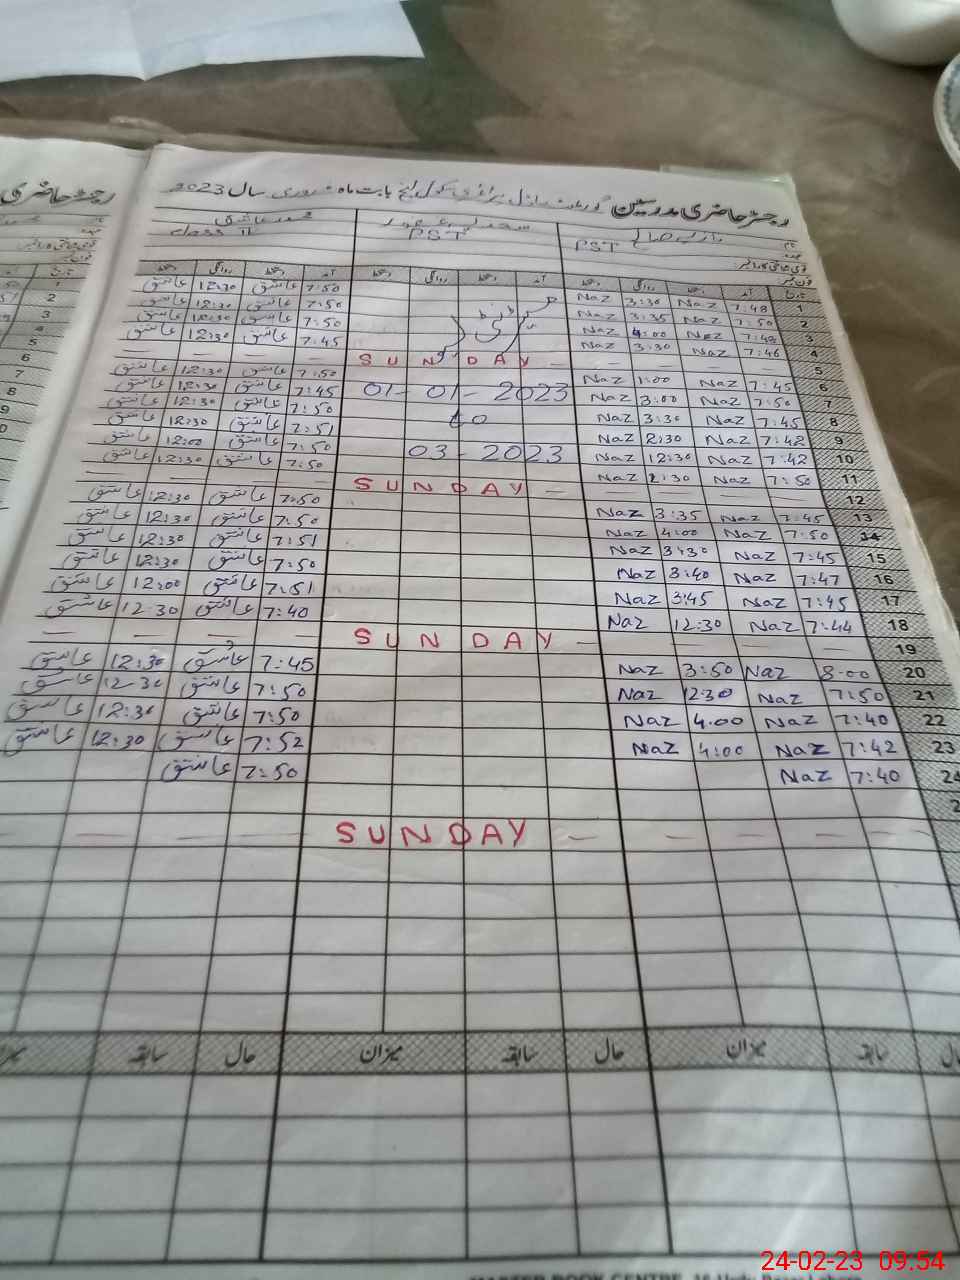 رجسٹر حاضری مدرسین گورنمنٹ ماڈل پرائمری سکول بابت ماہ فروری سال 2023
رجسٹر حاضری
نام
عہدہ
PST
PST
محمد عاشق
Class II
فون نمبر
تاریخ آمد دستخط روانگی دستخط آمد دستخط روانگی دستخط آمد دستخط روانگی دستخط
1 7:48 Naz 3:30 Naz 7:50 عاشق 12:30 عاشق
2 7:50 Naz 3:35 Naz 7:50 عاشق 12:30 عاشق
3 7:48 Naz 4:00 Naz 7:50 عاشق 12:30 عاشق
4 7:46 Naz 3:30 Naz 7:45 عاشق 12:30 عاشق
5 — — — — SUNDAY — — — —
6 7:45 Naz 1:00 Naz 7:50 عاشق 12:30 عاشق
7 7:50 Naz 3:00 Naz 01-01-2023 7:45 عاشق 12:30 عاشق
8 7:45 Naz 3:30 Naz to 7:50 عاشق 12:30 عاشق
9 7:42 Naz 2:30 Naz 7:51 عاشق 12:30 عاشق
10 7:42 Naz 12:30 Naz 03-2023 7:50 عاشق 12:00 عاشق
11 7:50 Naz 2:30 Naz 7:50 عاشق 12:30 عاشق
12 — — — — SUNDAY — — — —
13 7:45 Naz 3:35 Naz 7:50 عاشق 12:30 عاشق
14 7:50 Naz 4:00 Naz 7:50 عاشق 12:30 عاشق
15 7:45 Naz 3:30 Naz 7:51 عاشق 12:30 عاشق
16 7:47 Naz 3:40 Naz 7:50 عاشق 12:30 عاشق
17 7:45 Naz 3:45 Naz 7:51 عاشق 12:00 عاشق
18 7:44 Naz 12:30 Naz 7:40 عاشق 12:30 عاشق
19 — — — — SUNDAY — — — —
20 8:00 Naz 3:50 Naz 7:45 عاشق 12:30 عاشق
21 7:50 Naz 12:30 Naz 7:50 عاشق 12:30 عاشق
22 7:40 Naz 4:00 Naz 7:50 عاشق 12:30 عاشق
23 7:42 Naz 4:00 Naz 7:52 عاشق 12:30 عاشق
24 7:40 Naz 7:50 عاشق
2
— — — — SUNDAY — — — —
حال سابقہ میزان حال سابقہ میزان حال سابقہ میزان
MASTER BOOK CENTRE
24-02-23 09:54